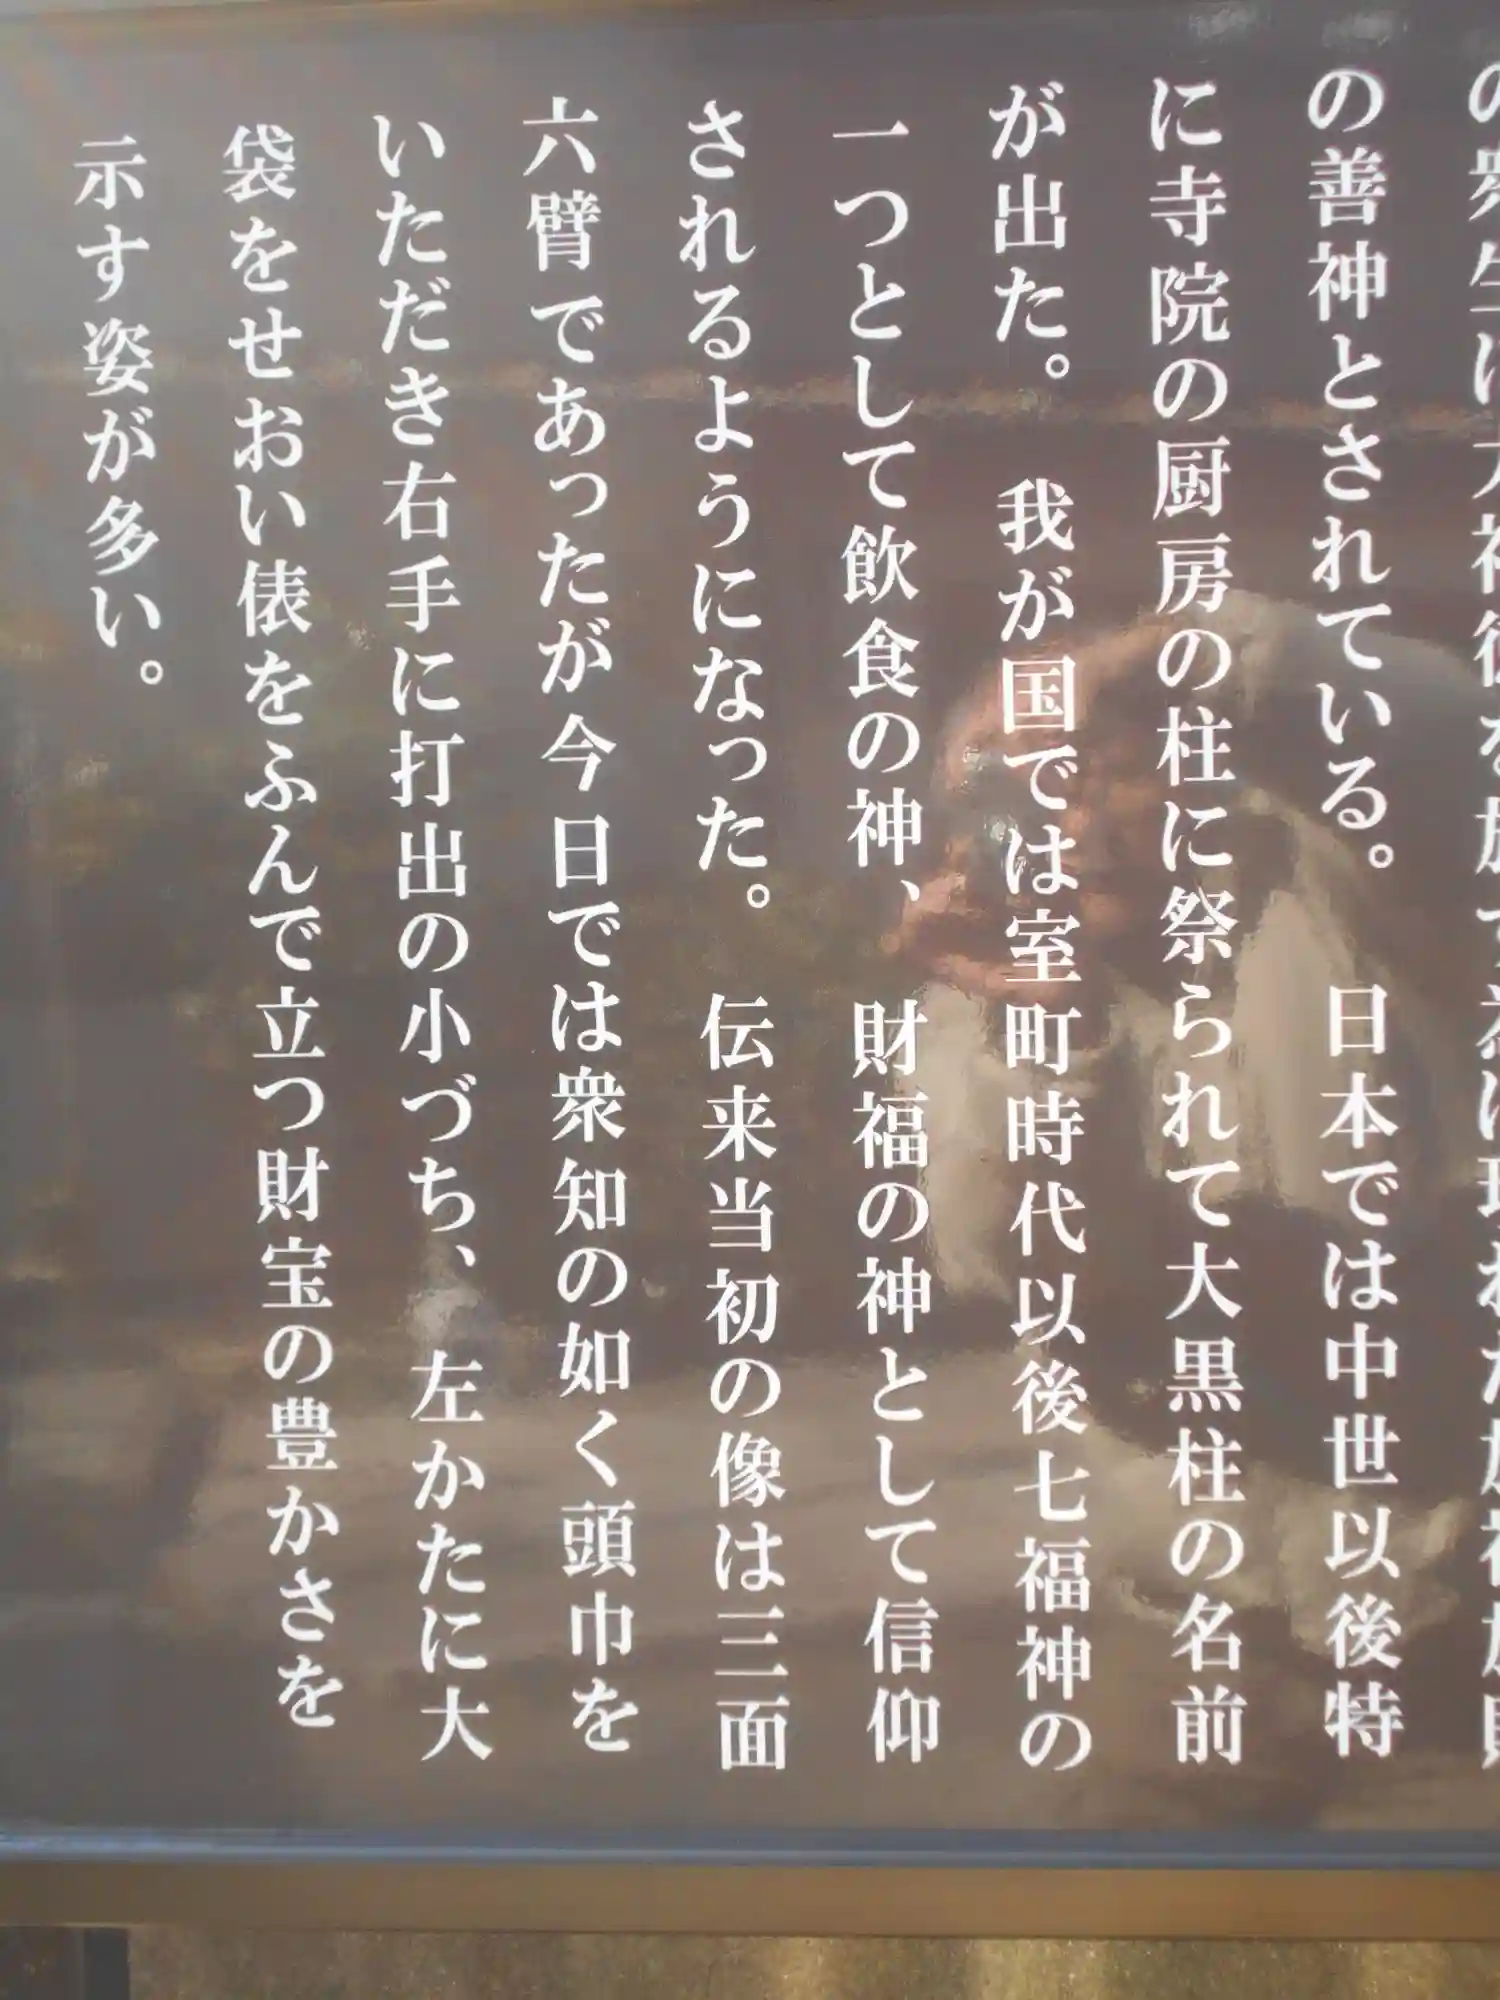 の善神とされている。　日本では中世以後特
に寺院の厨房の柱に祭られて大黒柱の名前
が出た。　我が国では室町時代以後七福神の
一つとして飲食の神、　財福の神として信仰
されるようになった。　伝来当初の像は三面
六臂であったが今日では衆知の如く頭巾を
いただき右手に打出の小づち、　左かたに大
袋をせおい俵をふんで立つ財宝の豊かさを
示す姿が多い。